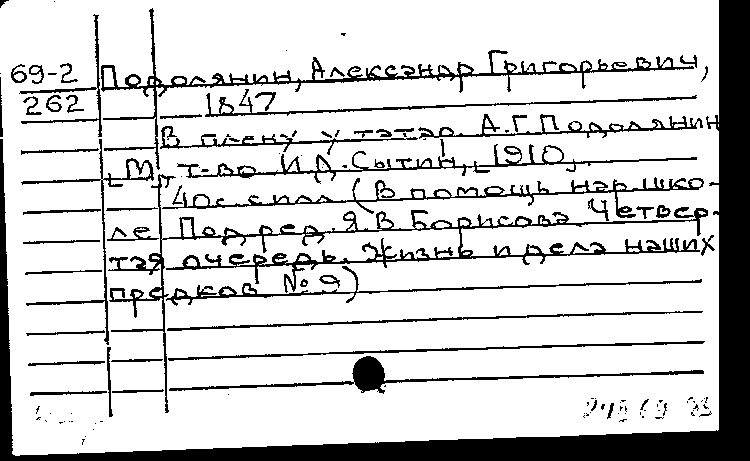 69-2 Подолянин, Александр Григорьевич,
262 1847
В плену у татар. А.Г. Подолянин
[М], т-во И.Д. Сытин, [1910].
40с с илл (В помощь нар. шко-
ле Под ред. Я.В Борисова. Четвер-
тая очередь. Жизнь и дела наших
предков №9)